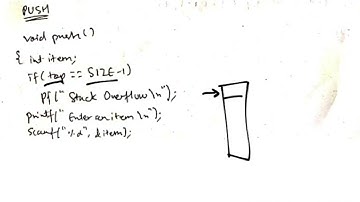 PUSH
void push()
{ int item;
if(top == SIZE-1)
pf("Stack Overflow\n");
printf("Enter an item\n");
scanf("%d", &item);